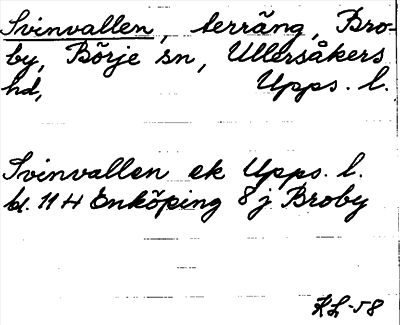 Svinvallen, terräng, Bro-
by, Börje sn, Ullersåkers
hd, Upps. l.
Svinvallen ek Upps. l.
bl. 11 H Enköping 8 j Broby
KL-58